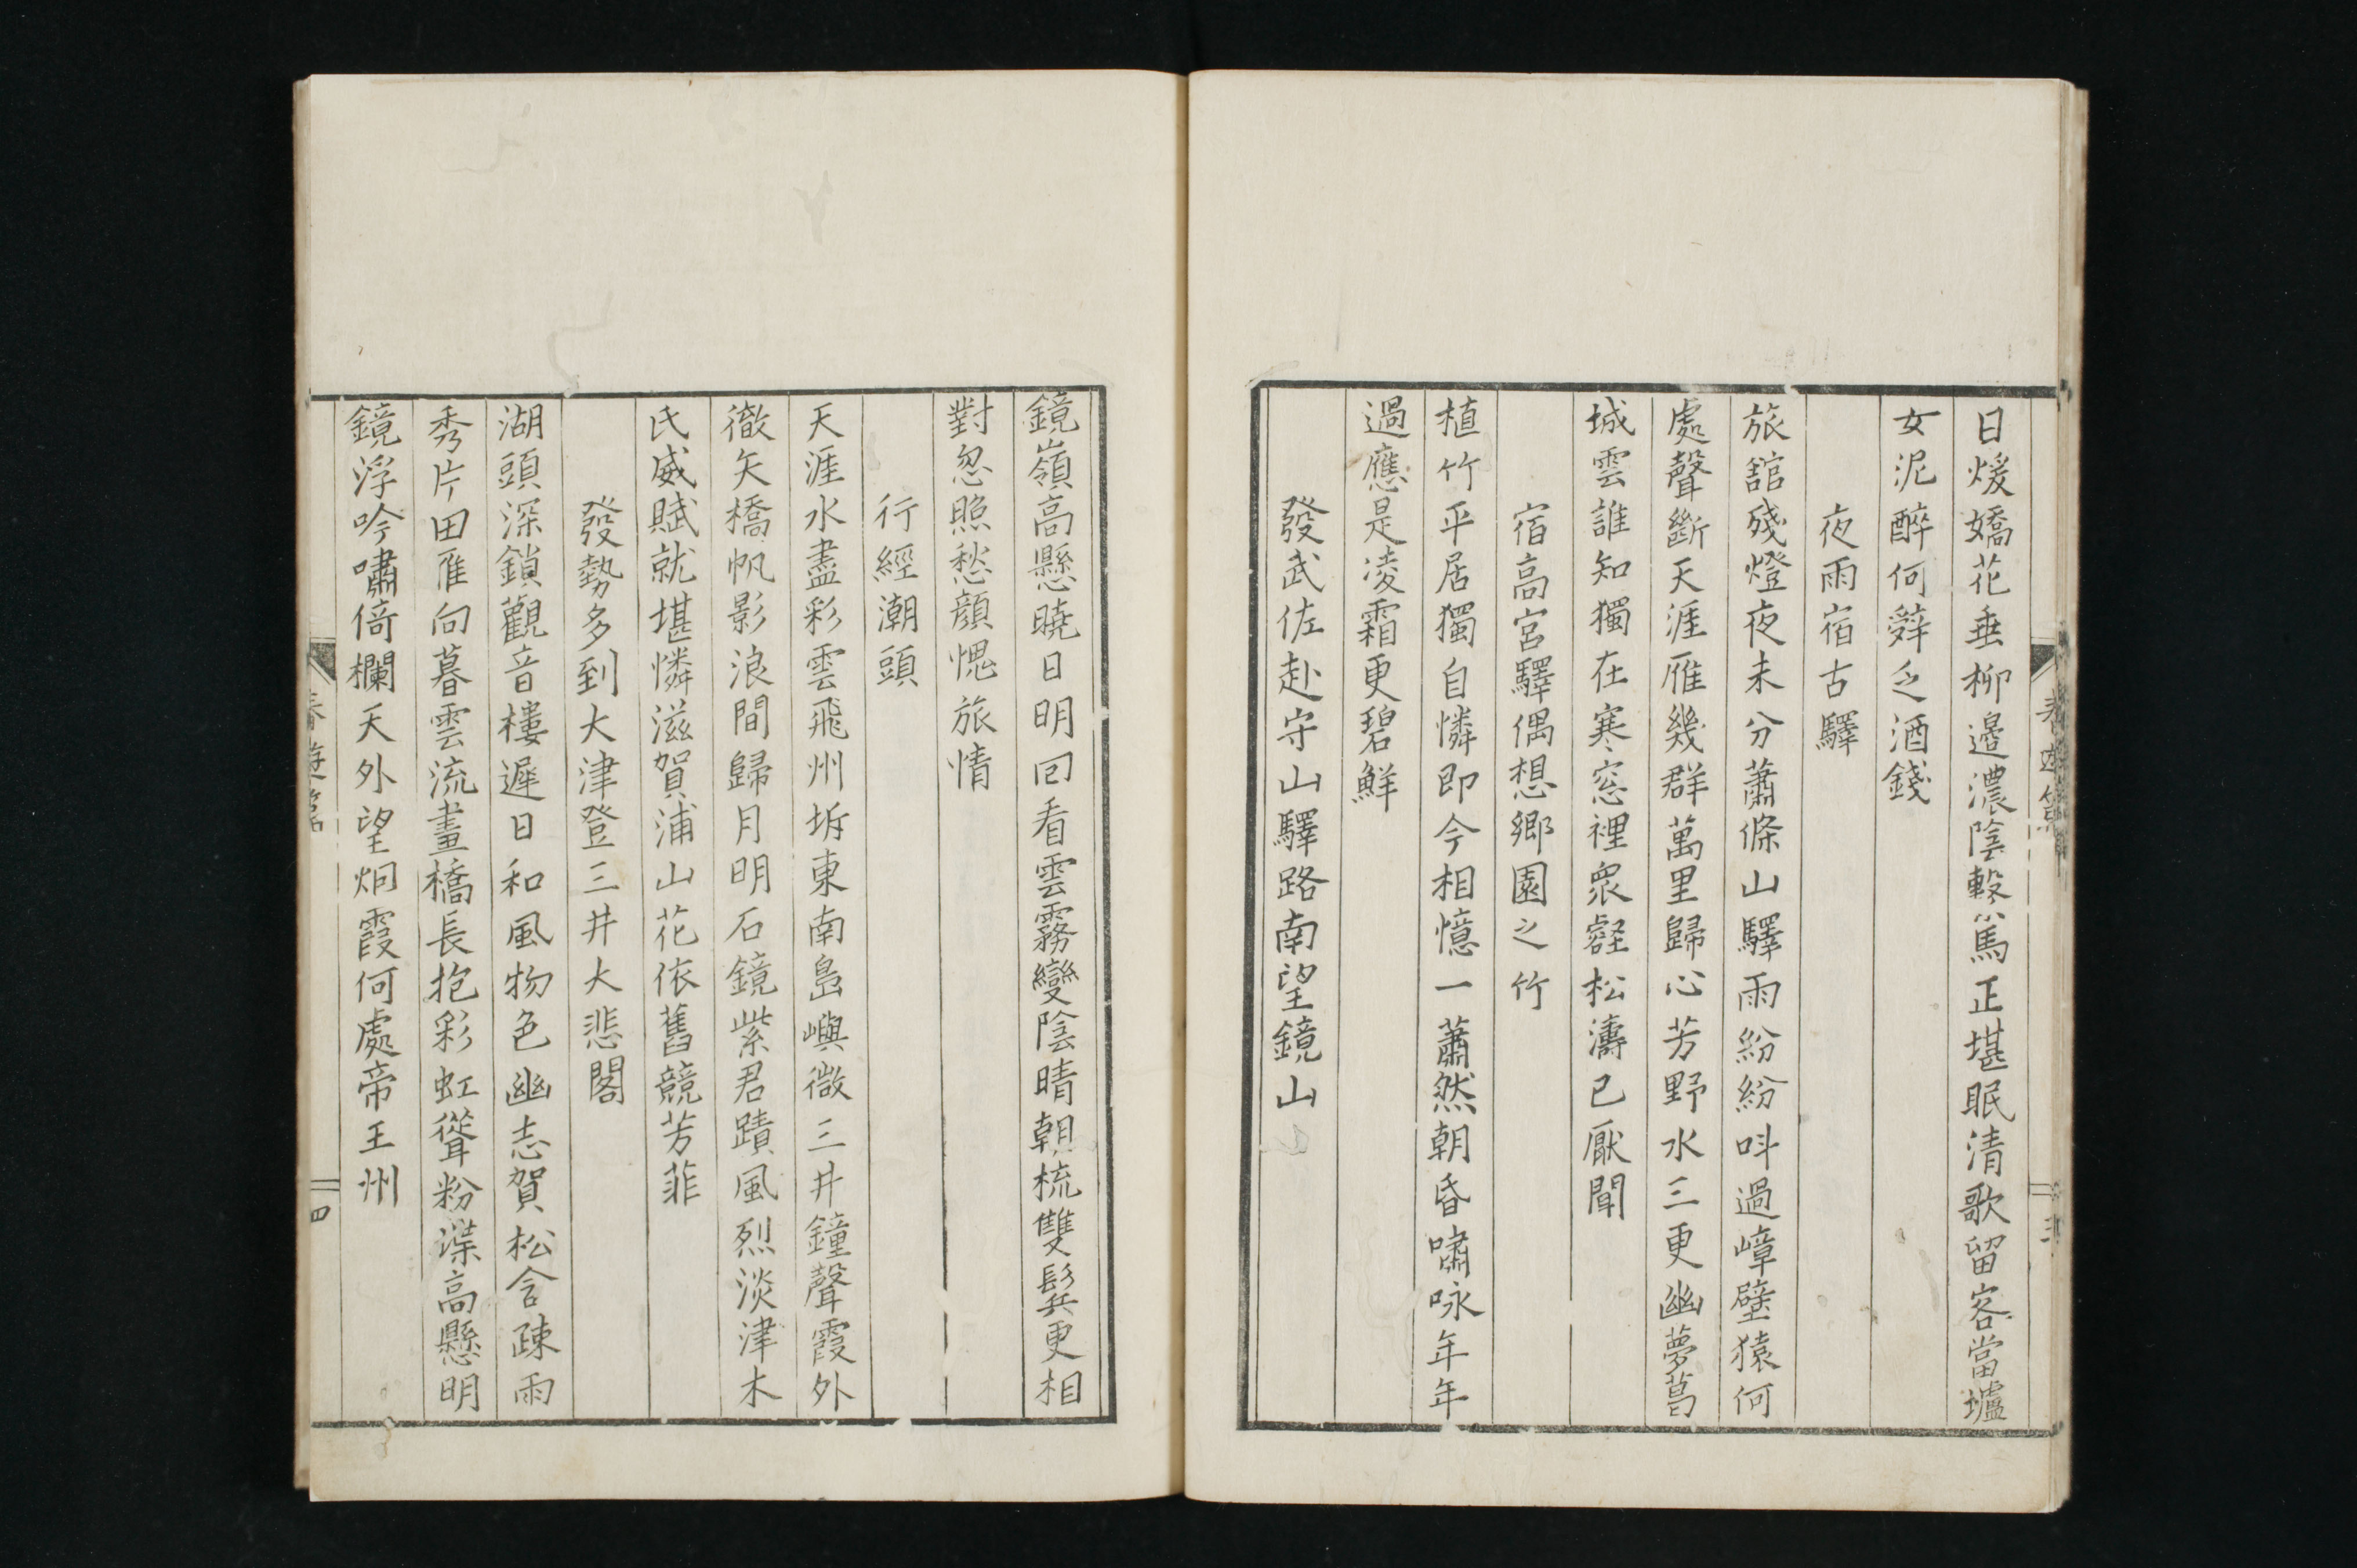 日煖嬌花垂柳邉濃陰繫馬正堪眠清歌留客當壚
女泥醉何辤乏酒錢
夜雨宿古驛
旅舘殘燈夜未分蕭條山驛雨紛紛呌過嶂壁猿何
處聲斷天涯雁幾群萬里歸心芳野水三更幽夢葛
城雲誰知獨在寒窓裡衆壑松濤已厭聞
宿高宮驛偶想鄉園之竹
植竹平居獨自憐即今相憶一蕭然朝昏嘯咏年年
過應是凌霜更碧鮮
發武佐赴守山驛路南望鏡山
鏡嶺高懸曉日明回看雲霧變陰晴朝梳雙鬂更相
對忽照愁顔愧旅情
行經潮頭
天涯水盡彩雲飛州坼東南島嶼微三井鐘聲霞外
徹矢橋帆影浪間歸月明石鏡紫君蹟風烈淡津木
氏威賦就堪憐滋賀浦山花依舊競芳菲
發勢多到大津登三井大悲閣
湖頭深鎖觀音樓遲日和風物色幽志賀松含疎雨
秀片田雁向暮雲流畫橋長抱彩虹聳粉堞高懸明
鏡浮吟嘯倚欄天外望炯霞何處帝王州
春遊篇
四